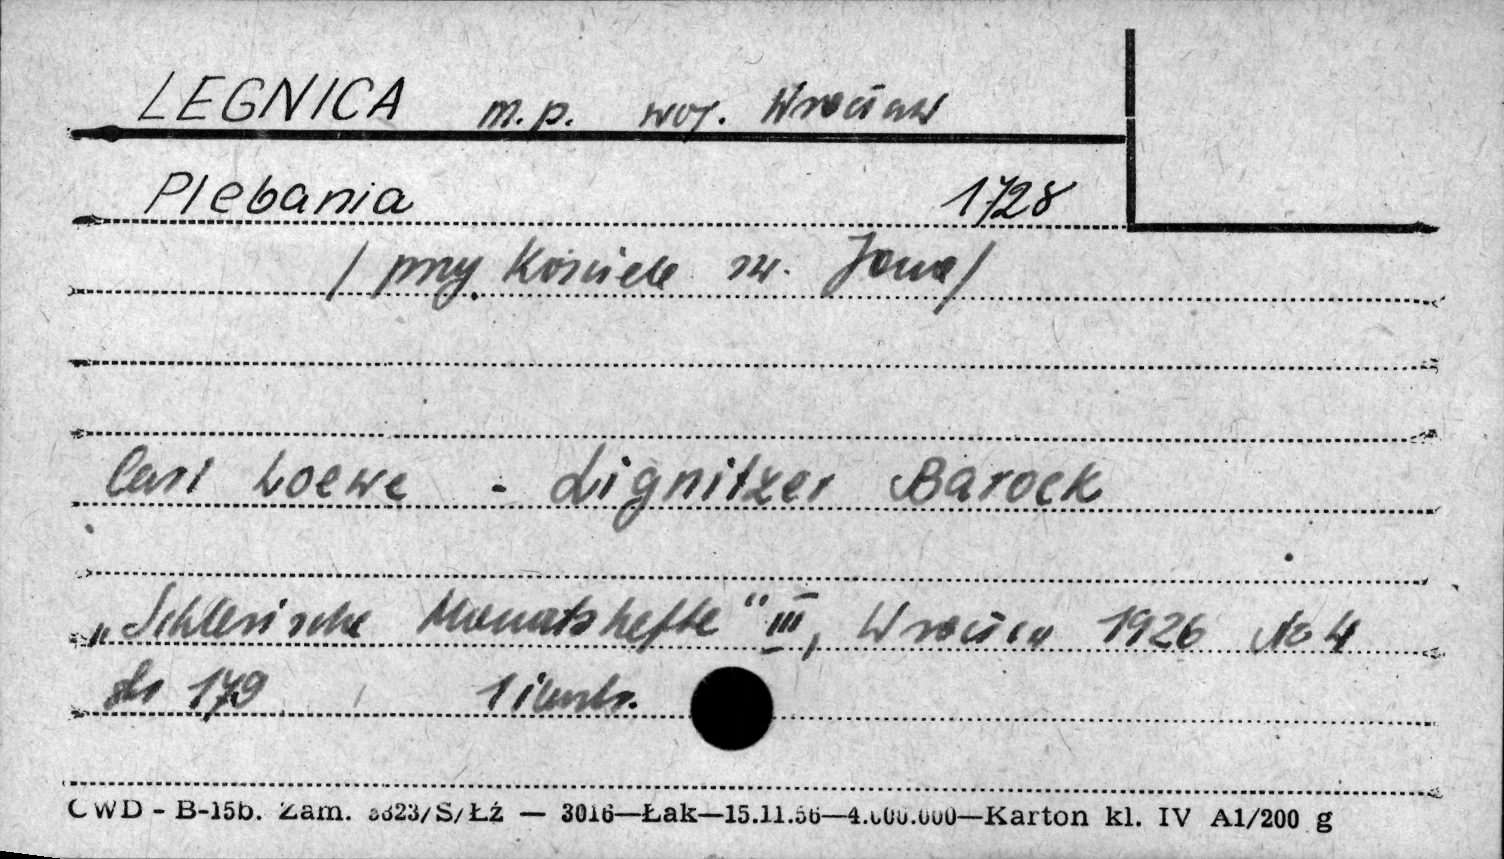 LEGNICA m.p. woj. Wrocław
Plebania 1728
/ przy Kościele św. Jana/
Carl Loewe - Lignitzer Barock
„Schlesische Monatshefte" III, Wrocław 1926 No 4
str 179 1 ilustr.
CWD - B-15b. Zam. 3823/S/Łź — 3016—Łak—15.11.56—4.000.000—Karton kl. IV A1/200 g